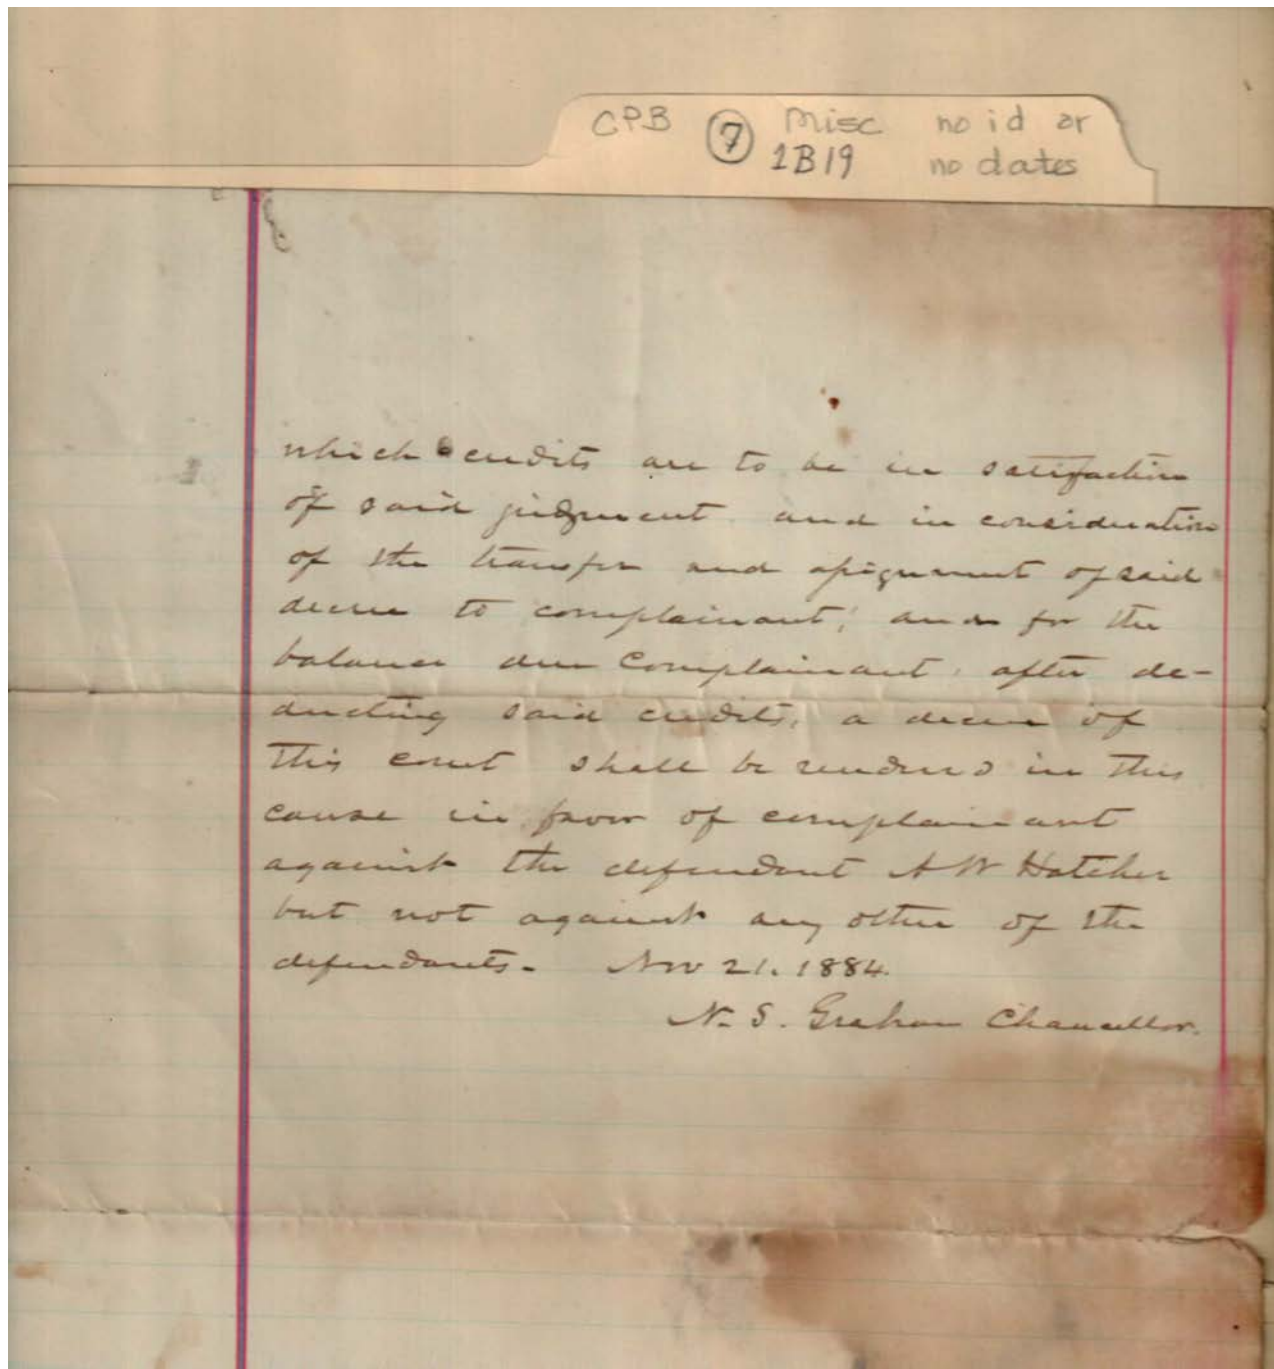 CPB 7 Misc no id or
1B19 no dates
which credits are to be in satisfaction
of said judgment and in consideration
of the transfer and assignment of said
decree to complainant; and for the
balance due Complainant, after de-
ducting said credits, a decree of
this court shall be rendered in this
cause in favor of complainant
against the defendant A W Hatcher
but not against any other of the
defendants. Nov 21. 1884.
N. S. Graham Chancellor.